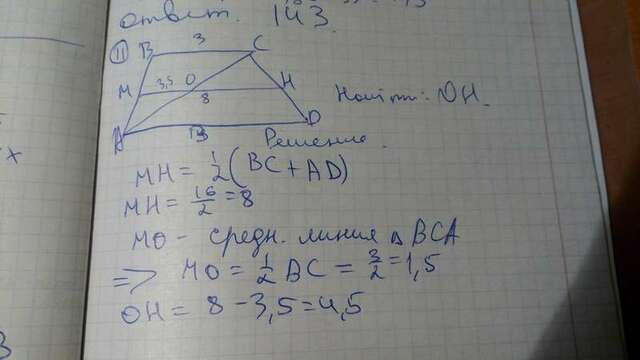 ответ. 143
11
B 3 C
M 3,5 O H
8
Найти: OH.
A 13 D
Решение.
MH = 1/2 (BC + AD)
MH = 16/2 = 8
MO - средн. линия △ BCA
=> MO = 1/2 BC = 3/2 = 1,5
OH = 8 - 3,5 = 4,5